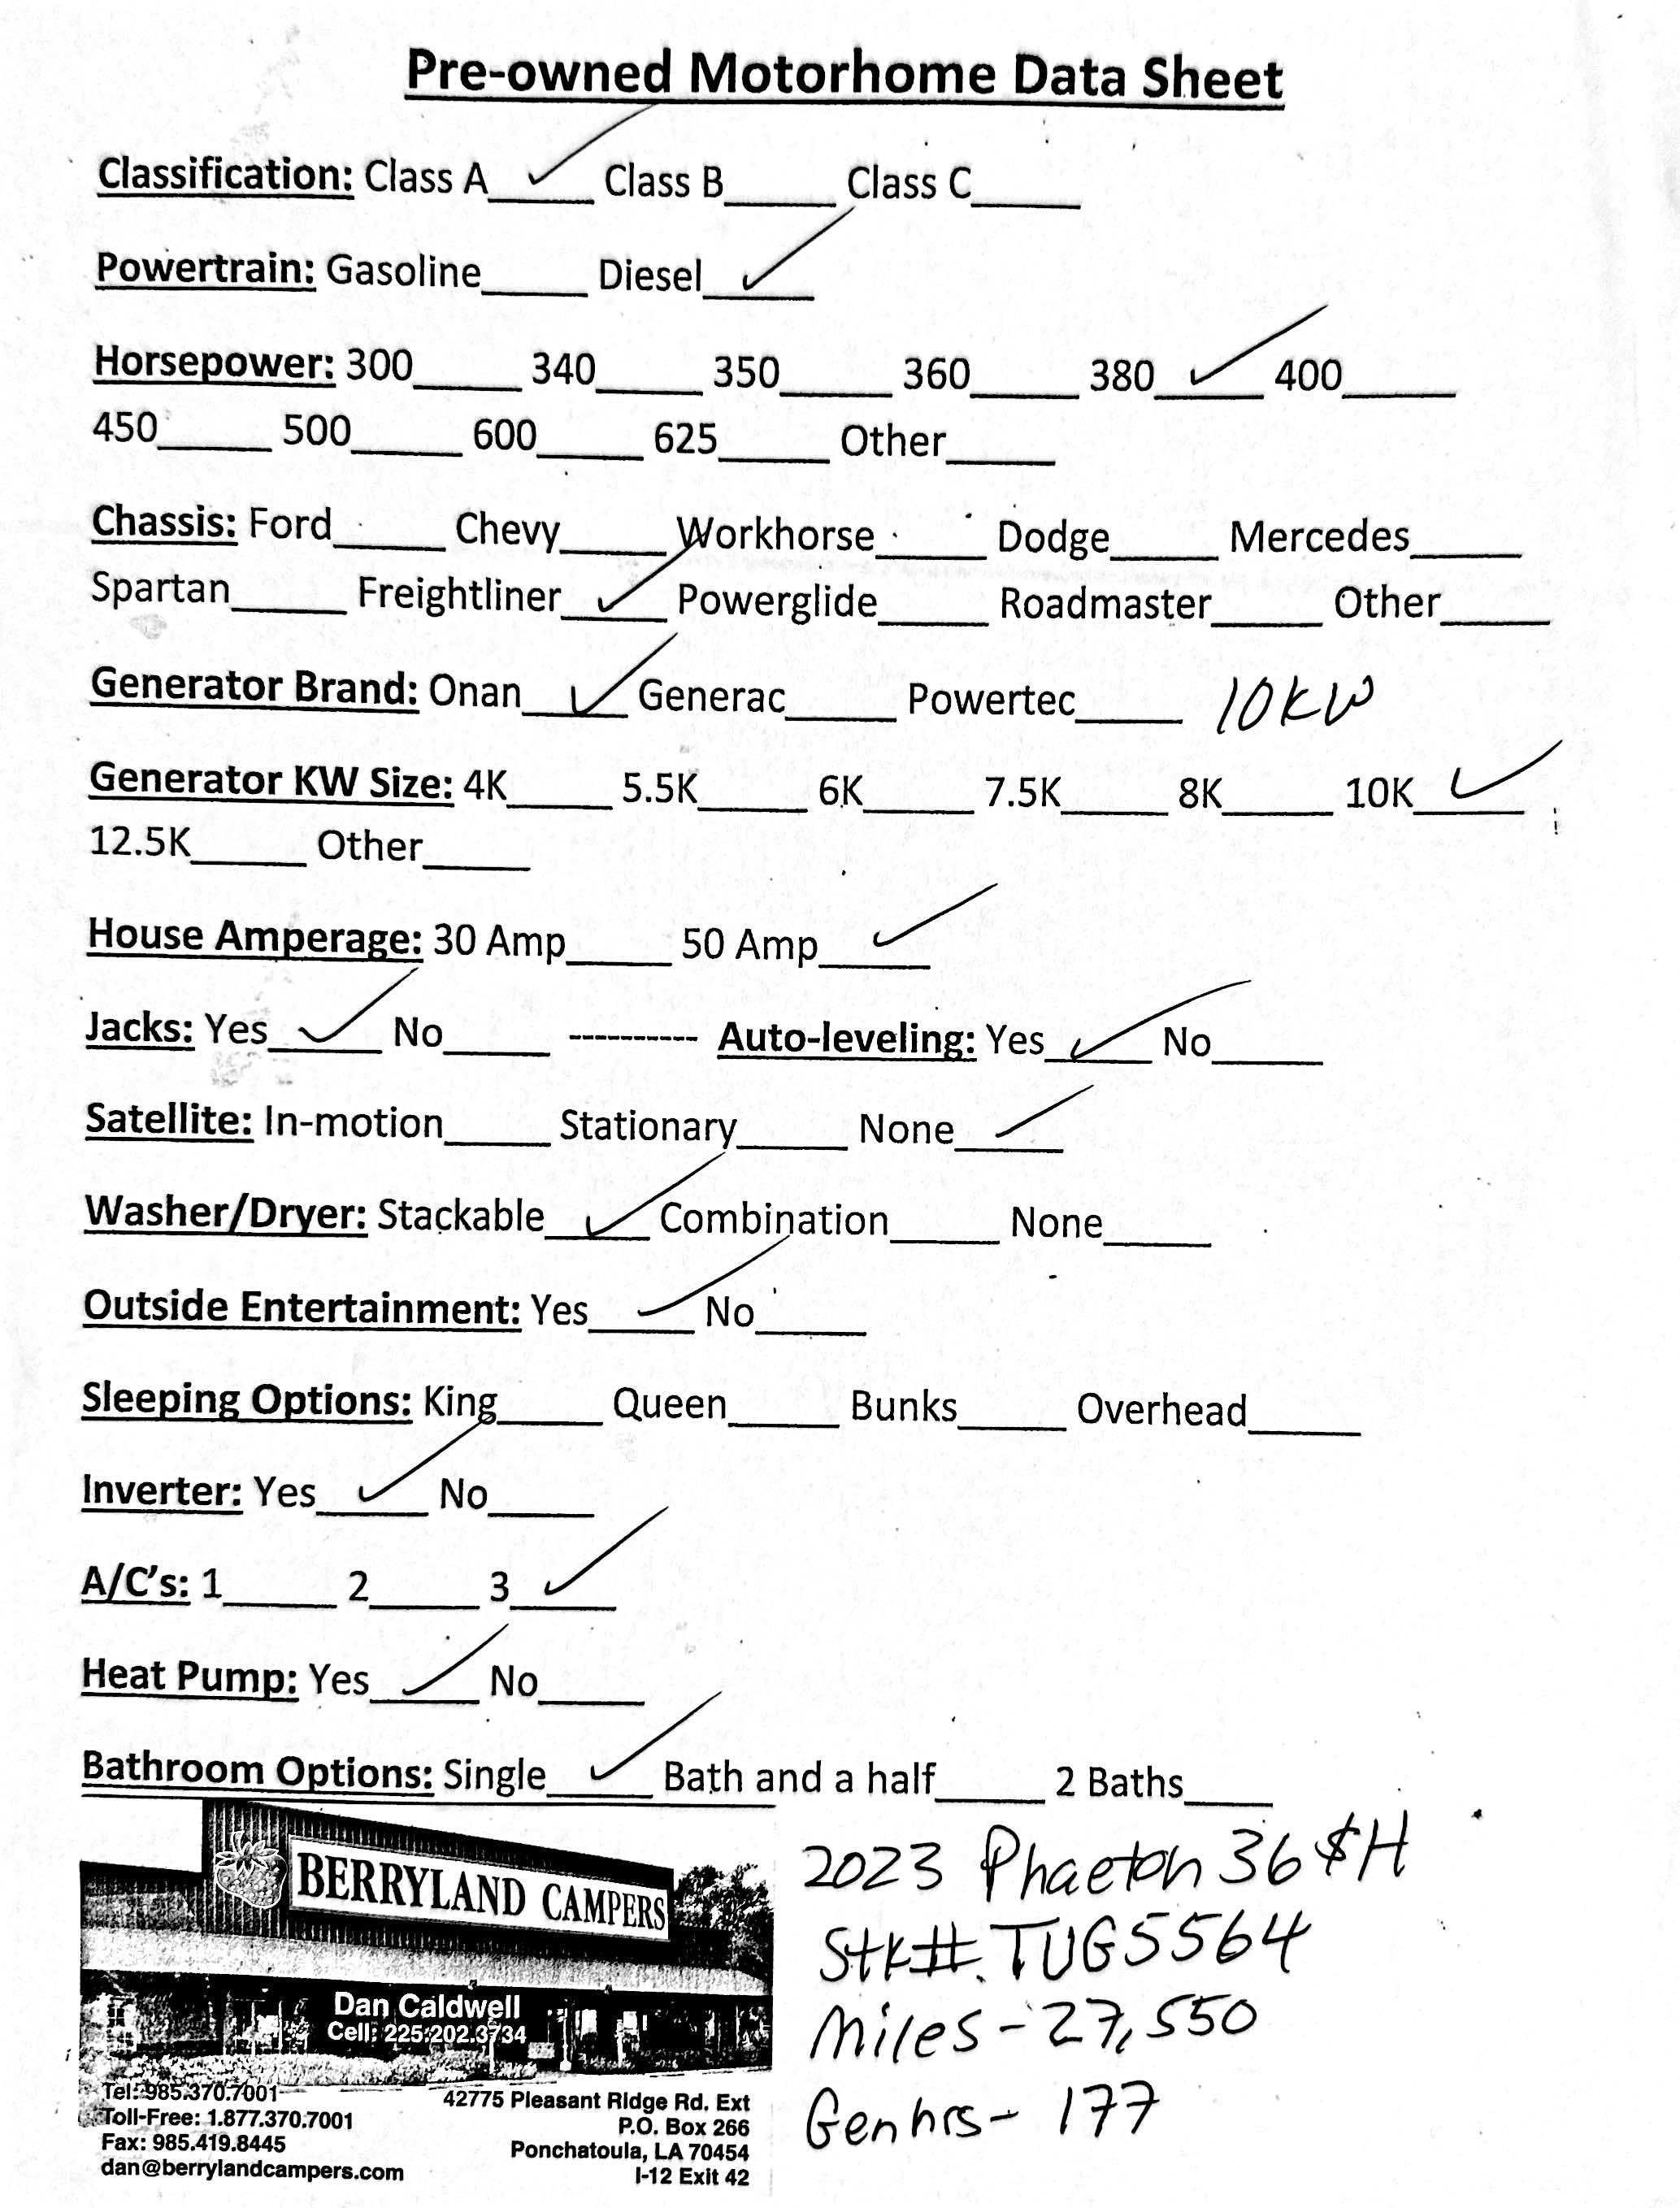 Pre-owned Motorhome Data Sheet
Classification: Class A__✓__ Class B_____ Class C_____
Powertrain: Gasoline_____ Diesel__✓__
Horsepower: 300_____ 340_____ 350_____ 360_____ 380__✓__ 400_____
450_____ 500_____ 600_____ 625_____ Other_____
Chassis: Ford_____ Chevy_____ Workhorse_____ Dodge_____ Mercedes_____
Spartan_____ Freightliner__✓__ Powerglide_____ Roadmaster_____ Other_____
Generator Brand: Onan__✓__ Generac_____ Powertec_____ 10KW
Generator KW Size: 4K_____ 5.5K_____ 6K_____ 7.5K_____ 8K_____ 10K__✓__
12.5K_____ Other_____
House Amperage: 30 Amp_____ 50 Amp__✓__
Jacks: Yes__✓__ No_____ ---------- Auto-leveling: Yes__✓__ No_____
Satellite: In-motion_____ Stationary_____ None__✓__
Washer/Dryer: Stackable__✓__ Combination_____ None_____
Outside Entertainment: Yes__✓__ No_____
Sleeping Options: King_____ Queen_____ Bunks_____ Overhead_____
Inverter: Yes__✓__ No_____
A/C's: 1_____ 2_____ 3__✓__
Heat Pump: Yes__✓__ No_____
Bathroom Options: Single__✓__ Bath and a half_____ 2 Baths____
BERRYLAND CAMPERS
Dan Caldwell
Cell: 225.202.3734
Tel: 985.370.7001
Toll-Free: 1.877.370.7001
Fax: 985.419.8445
dan@berrylandcampers.com
42775 Pleasant Ridge Rd. Ext
P.O. Box 266
Ponchatoula, LA 70454
I-12 Exit 42
2023 Phaeton 36 $H
Stk#. TUG5564
Miles - 27,550
Gen hrs - 177